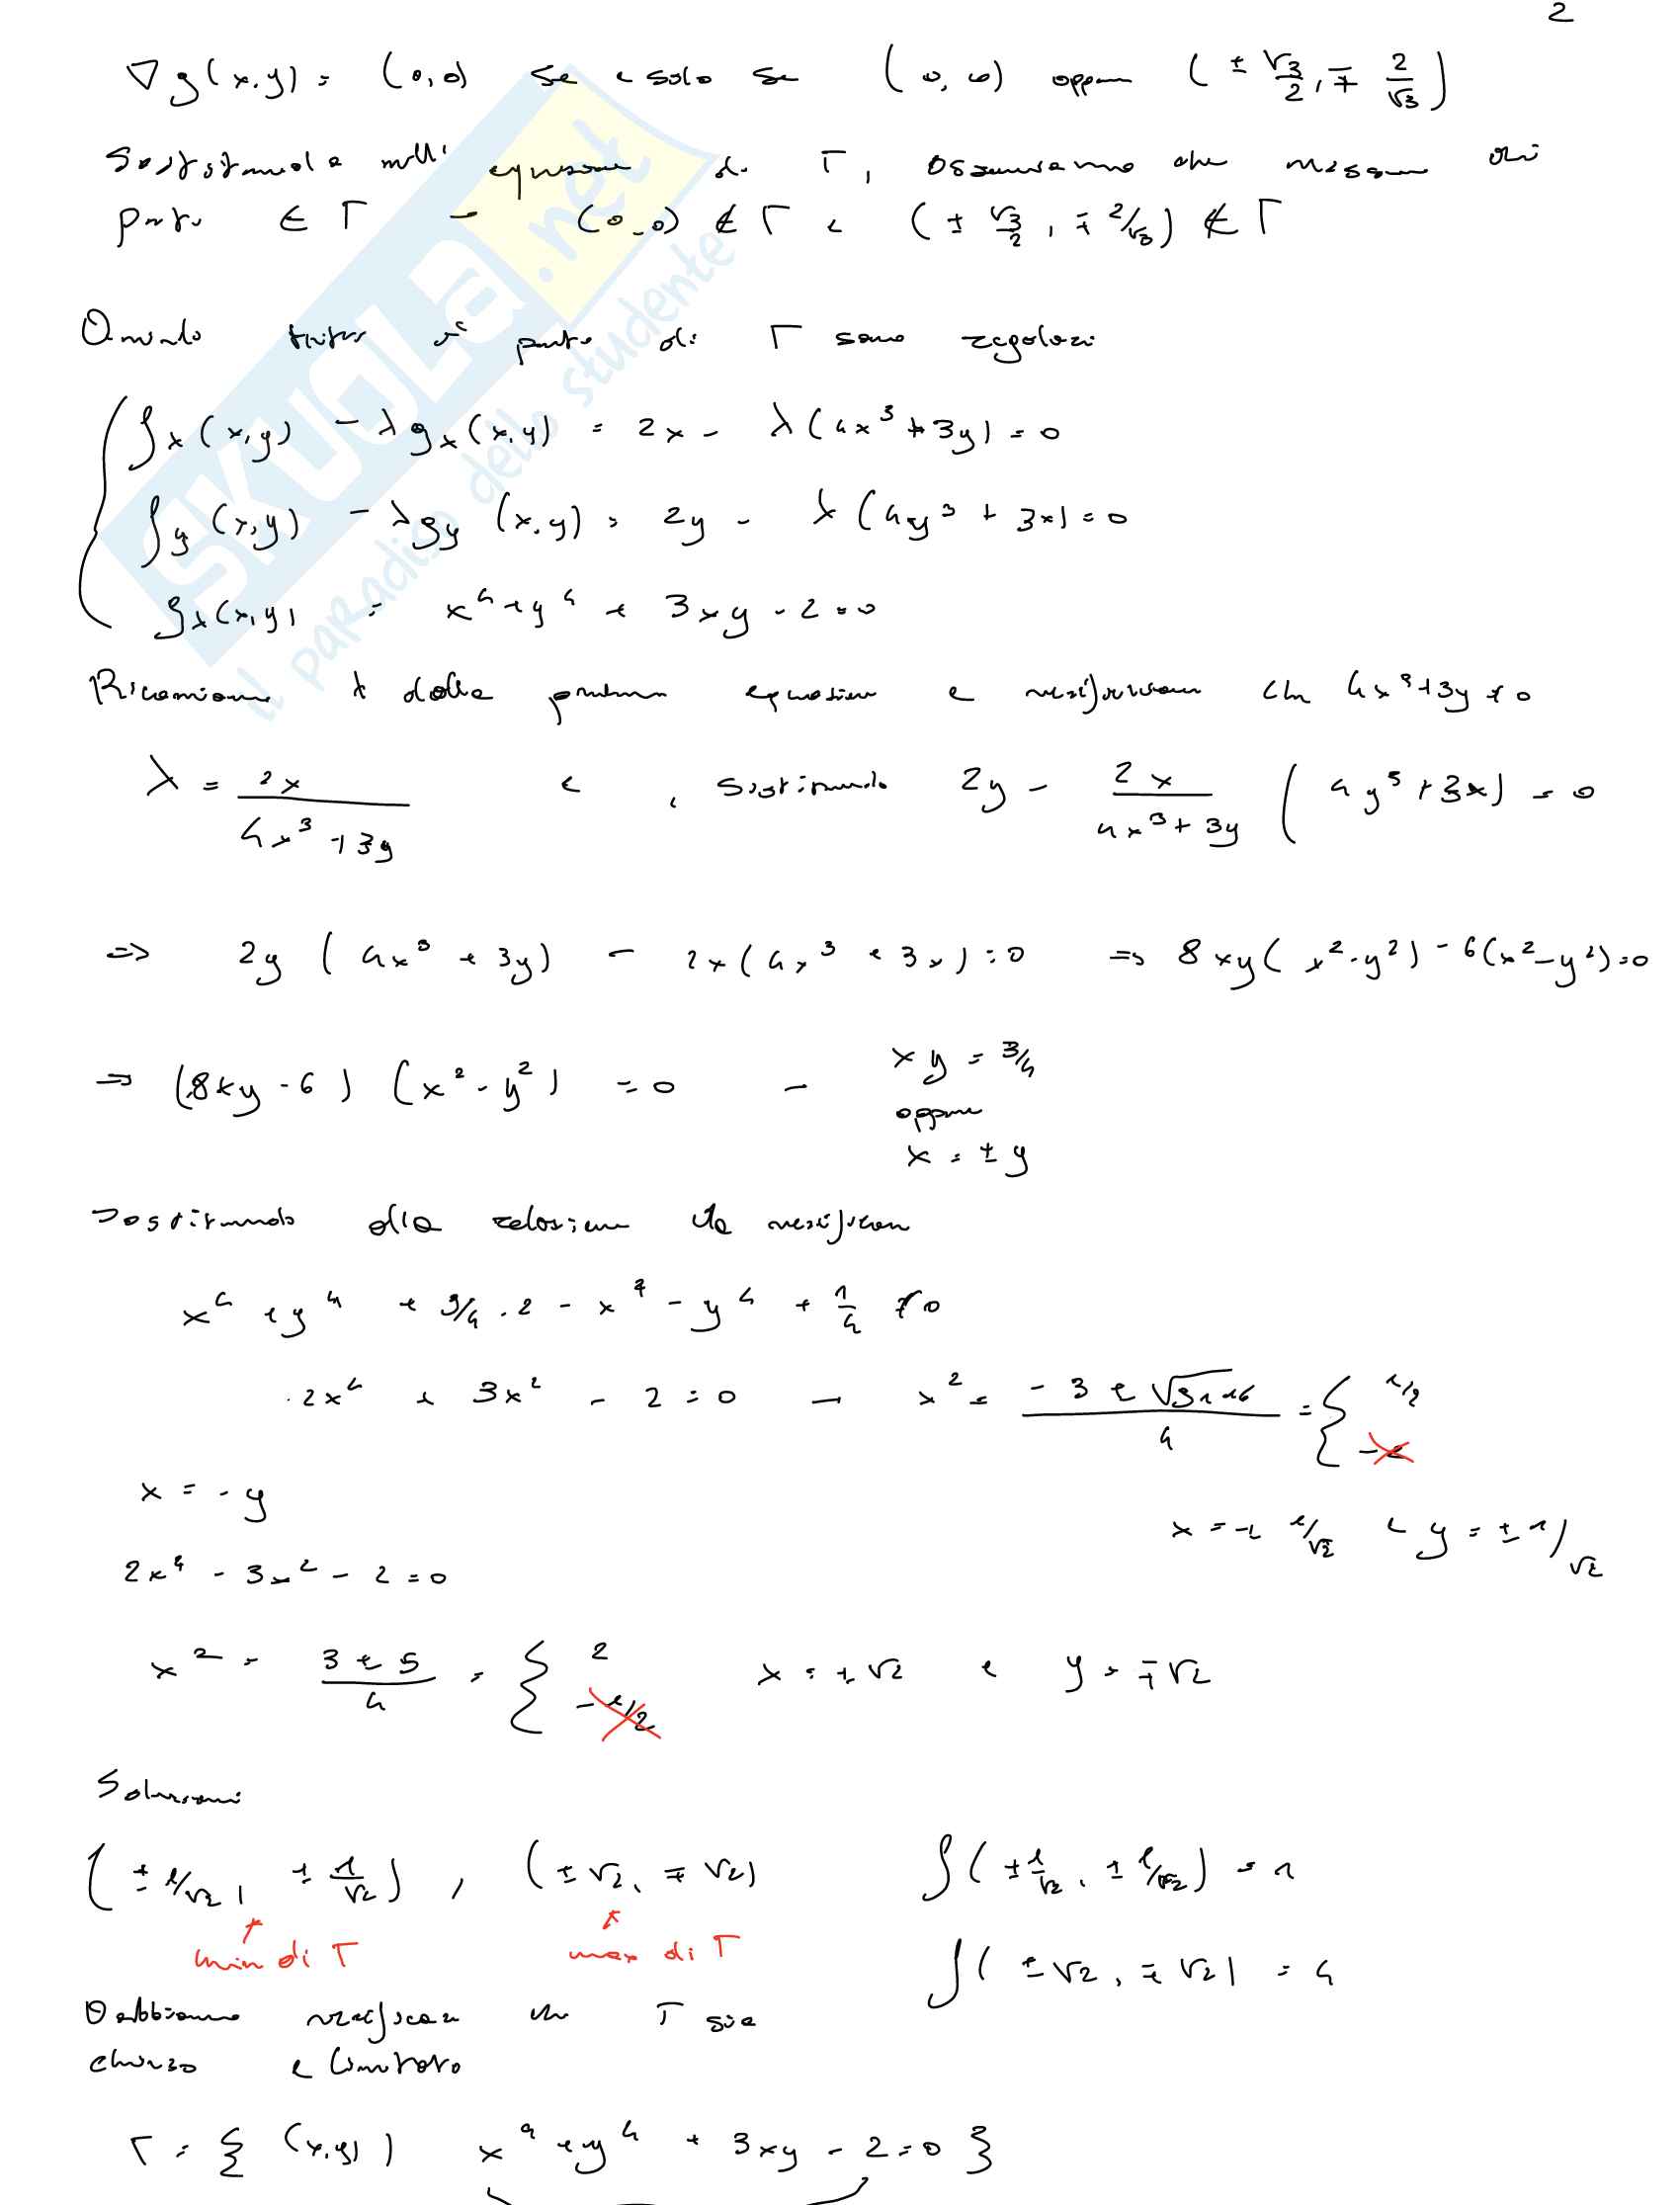 2
∇g(x,y) = (0,0) se e solo se (0,0) oppure (± √3/2, ∓ 2/√3)
Sostituendo nell' equazione di Γ, osserviamo che nessun dei
punti ∈ Γ – (0,0) ∉ Γ e (± √3/2, ∓ 2/√3) ∉ Γ
Quindo tutti i punti di Γ sono regolari
fx(x,y) – λ gx(x,y) = 2x – λ(4x³ + 3y) = 0
fy(x,y) – λ gy(x,y) = 2y – λ(4y³ + 3x) = 0
gλ(x,y) = x⁴ + y⁴ + 3xy – 2 = 0
Ricaviamo λ dalla prima equazione e verifichiamo che 4x³ + 3y ≠ 0
λ = 2x / (4x³ + 3y) e, sostituendo 2y – 2x/(4x³ + 3y) (4y³ + 3x) = 0
⇒ 2y (4x³ + 3y) – 2x(4x³ + 3x) = 0 ⇒ 8xy(x² - y²) – 6(x² – y²) = 0
⇒ (8xy – 6) (x² – y²) = 0 – xy = 3/4
oppure
x = ± y
Sostituendo alla relazione da verificare
x⁴ + y⁴ + 3/4 · 2 – x⁴ – y⁴ + 1/4 ≠ 0
2x⁴ + 3x² – 2 = 0 – x² = (–3 ± √(9+16))/4 = { 1/2
–2
x = –y
x = ± 1/√2 e y = ± 1/√2
2x⁴ – 3x² – 2 = 0
x² = (3 ± 5)/4 = { 2 x = ± √2 e y = ∓ √2
–1/2
Soluzioni
(± 1/√2, ± 1/√2), (± √2, ∓ √2) f(± 1/√2, ± 1/√2) = 1
min di Γ max di Γ
f(± √2, ∓ √2) = 4
Dobbiamo verificare che Γ sia
chiuso e limitato
Γ = { (x,y) x⁴ + y⁴ + 3xy – 2 = 0 }
SKUOLA.net
il paradiso dello studente